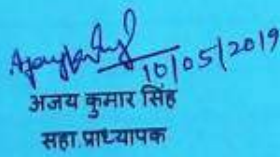 10/05/2019
अजय कुमार सिंह
सहा प्राध्यापक